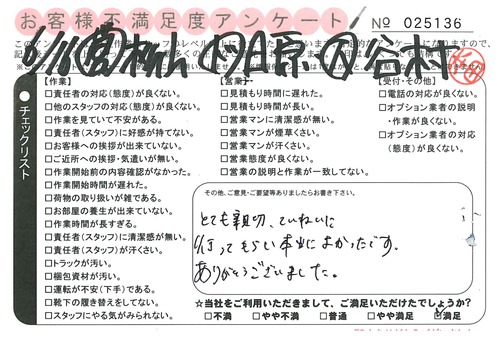 お客様不満足度アンケート
№ 025136
チェックリスト
【作業】
□責任者の対応(態度)が良くない。
□他のスタッフの対応(態度)が良くない。
□作業を見ていて不安がある。
□責任者(スタッフ)に好感が持てない。
□お客様への挨拶が出来ていない。
□ご近所への挨拶・気遣いが無い。
□作業開始前の内容確認がなかった。
□作業開始時間が遅れた。
□荷物の取り扱いが雑である。
□お部屋の養生が出来ていない。
□作業時間が長すぎる。
□責任者(スタッフ)に清潔感が無い。
□責任者(スタッフ)が汗くさい。
□トラックが汚い。
□梱包資材が汚い。
□運転が不安(下手)である。
□靴下の履き替えをしてない。
□スタッフにやる気がみられない。
【営業】
□見積もり時間に遅れた。
□見積もり時間が長い。
□営業マンに清潔感が無い。
□営業マンが煙草くさい。
□営業マンが汗くさい。
□営業態度が良くない。
□営業の説明と作業が一致してない。
【受付・その他】
□電話の対応が良くない。
□オプション業者の説明
・作業が良くない。
□オプション業者の対応
(態度)が良くない。
その他、ご意見・ご要望等ありましたらお書き下さい。
とても親切、ていねいに
行ってもらい本当によかったです。
ありがとうございました。
☆当社をご利用いただきまして、ご満足いただけたでしょうか?
□不満 □やや不満 □普通 □やや満足 ☑満足